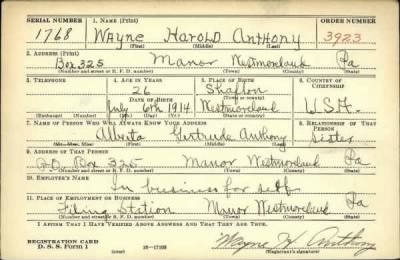 SERIAL NUMBER 1. NAME (Print) ORDER NUMBER
1768 Wayne Harold Anthony 3923
(First) (Middle) (Last)
2. ADDRESS (Print)
Box 325 Manor Westmoreland Pa
(Number and street or R. F. D. number) (Town) (County) (State)
3. TELEPHONE 4. AGE IN YEARS 5. PLACE OF BIRTH 6. COUNTRY OF CITIZENSHIP
26
DATE OF BIRTH (Town or county)
July 6th 1914 Westmoreland U.S.A.
(Exchange) (Number) (Mo.) (Day) (Yr.) (State or country)
7. NAME OF PERSON WHO WILL ALWAYS KNOW YOUR ADDRESS 8. RELATIONSHIP OF THAT PERSON
Alberta Gertrude Anthony sister
(Mr., Mrs., Miss) (First) (Middle) (Last)
9. ADDRESS OF THAT PERSON
P.O. Box 325 Manor Westmoreland Pa
(Number and street or R. F. D. number) (Town) (County) (State)
10. EMPLOYER'S NAME
In business for self
11. PLACE OF EMPLOYMENT OR BUSINESS
Filing Station Manor Westmoreland Pa
(Number and street or R. F. D. number) (Town) (County) (State)
I AFFIRM THAT I HAVE VERIFIED ABOVE ANSWERS AND THAT THEY ARE TRUE.
REGISTRATION CARD
D. S. S. Form 1 (over) 16-17105 Wayne H. Anthony
(Registrant's signature)